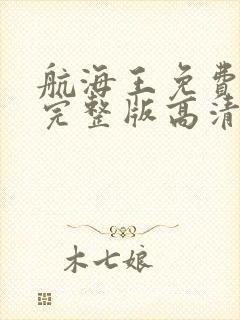 航海王免费
完整版高清
木七娘